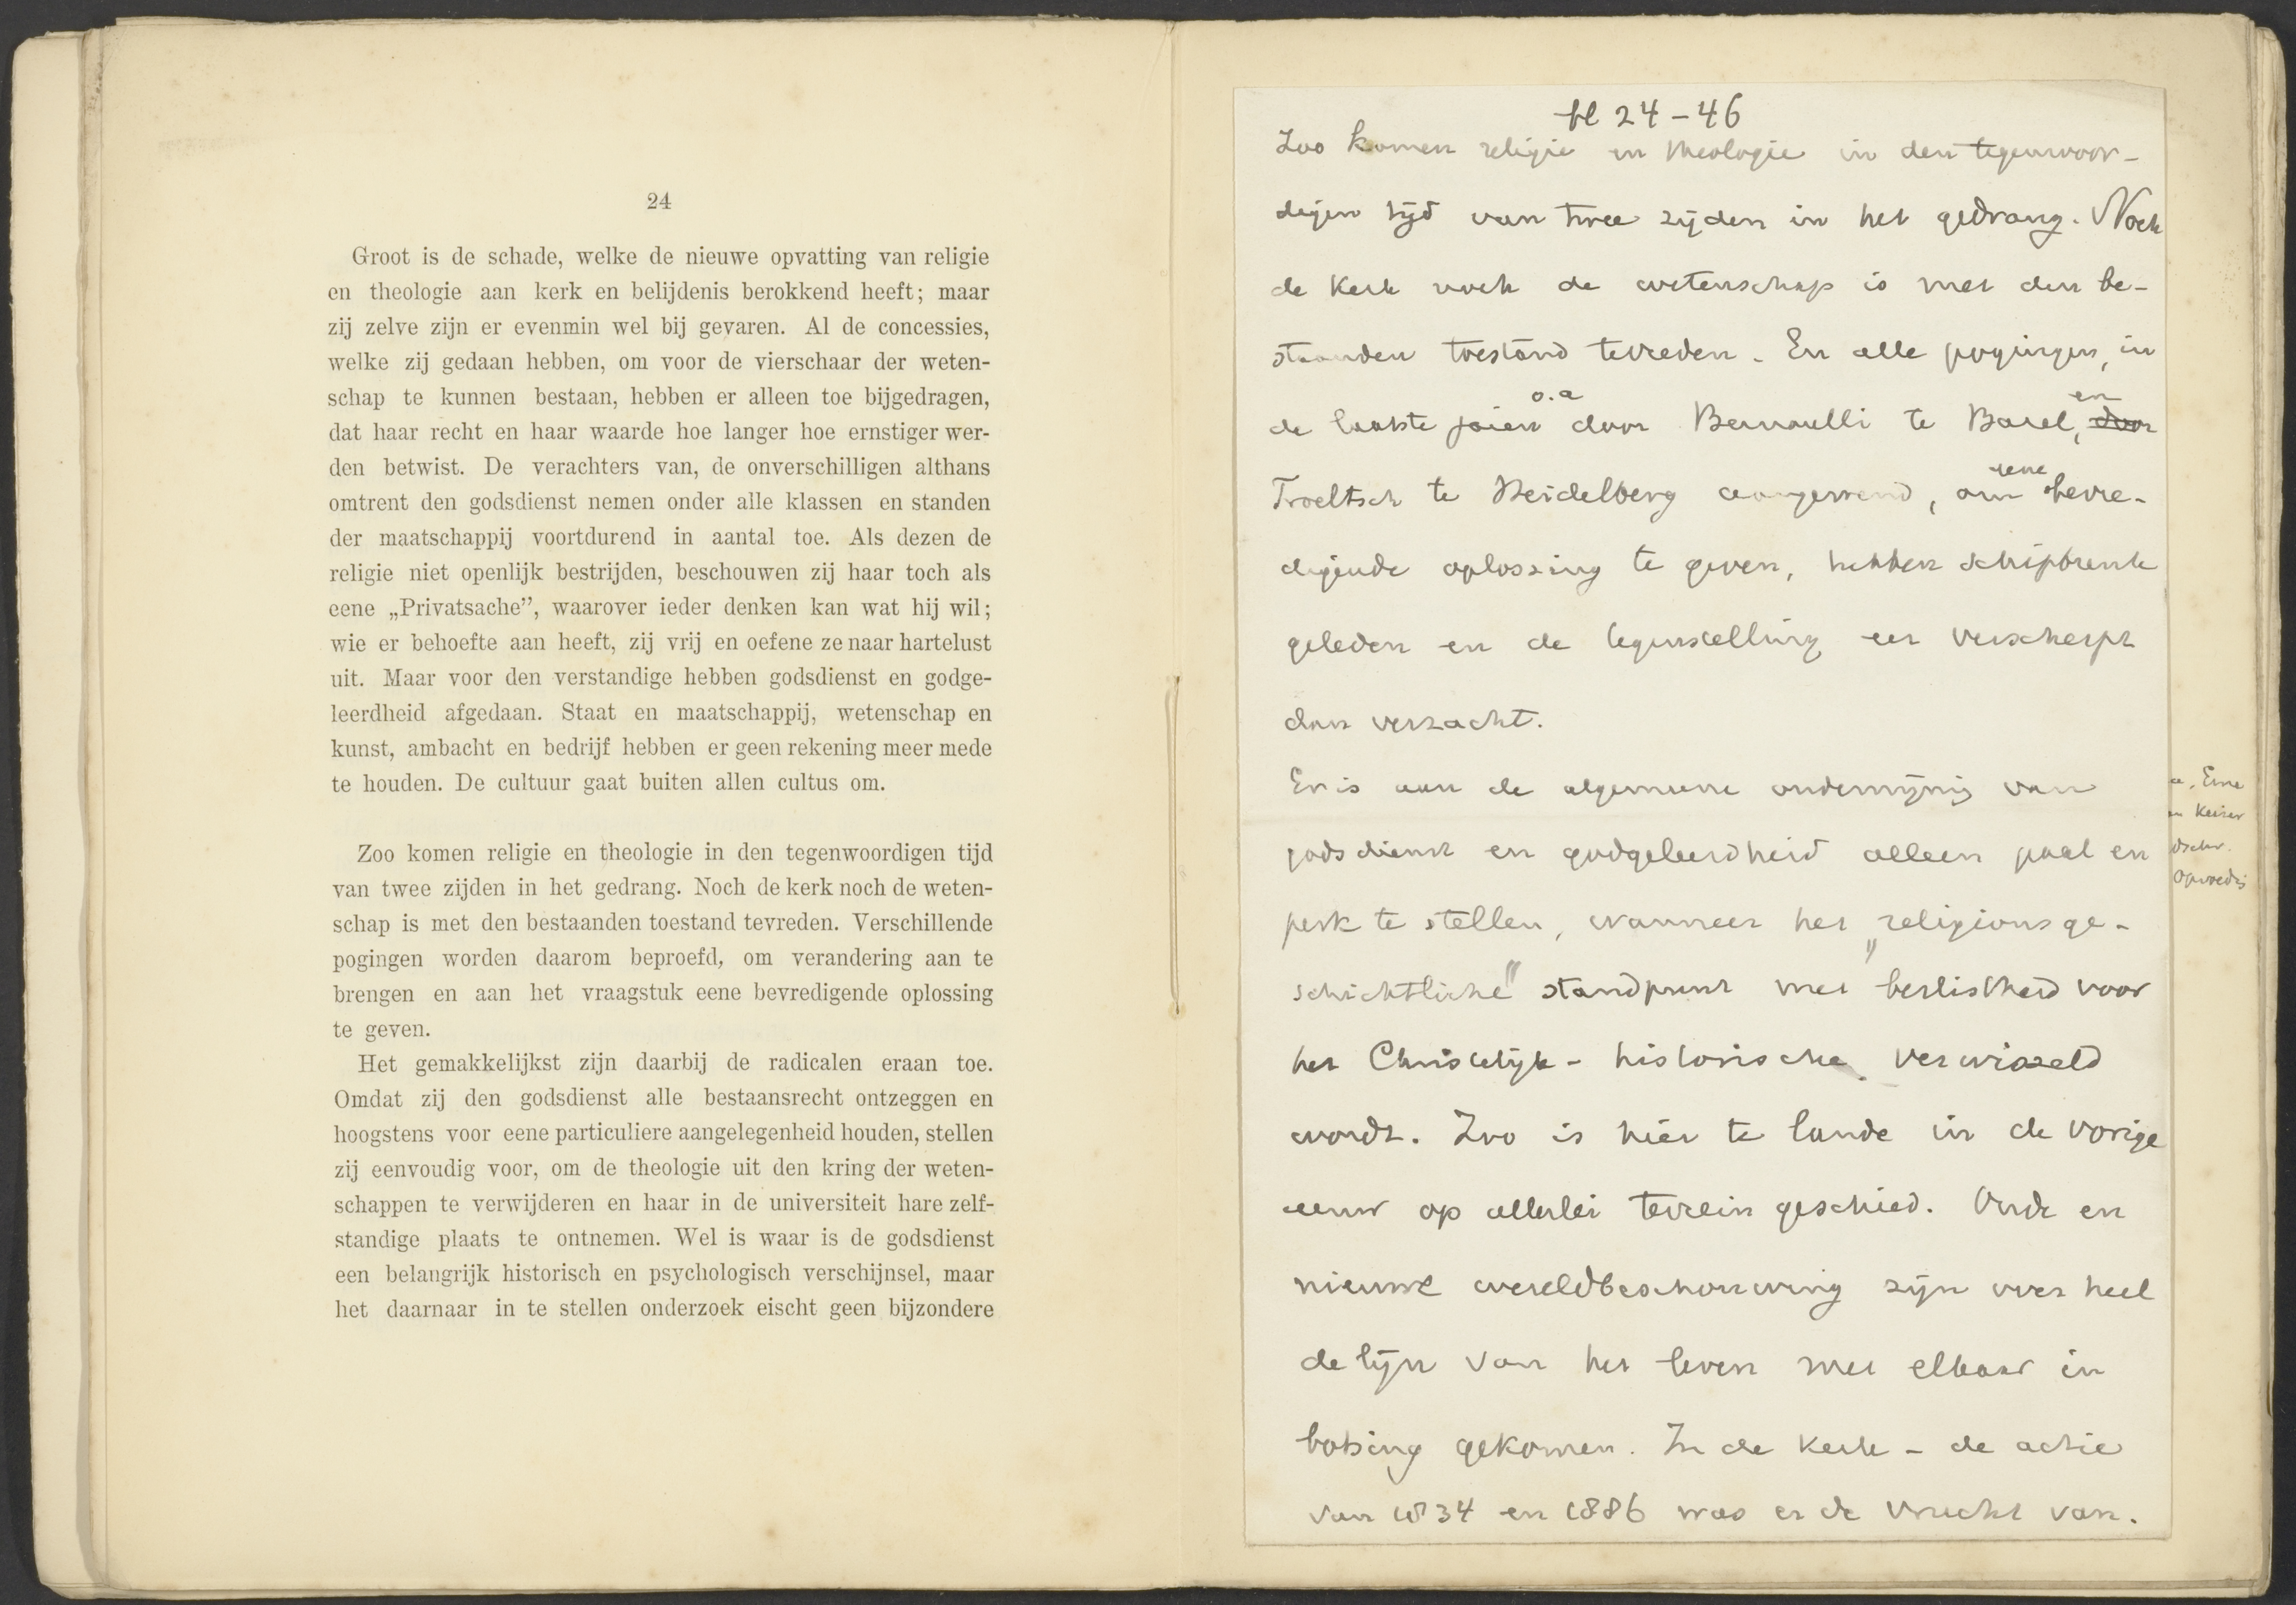 24
Groot is de schade, welke de nieuwe opvatting van religie
en theologie aan kerk en belijdenis berokkend heeft; maar
zij zelve zijn er evenmin wel bij gevaren. Al de concessies,
welke zij gedaan hebben, om voor de vierschaar der weten-
schap te kunnen bestaan, hebben er alleen toe bijgedragen,
dat haar recht en haar waarde hoe langer hoe ernstiger wer-
den betwist. De verachters van, de onverschilligen althans
omtrent den godsdienst nemen onder alle klassen en standen
der maatschappij voortdurend in aantal toe. Als dezen de
religie niet openlijk bestrijden, beschouwen zij haar toch als
eene „Privatsache”, waarover ieder denken kan wat hij wil;
wie er behoefte aan heeft, zij vrij en oefene ze naar hartelust
uit. Maar voor den verstandige hebben godsdienst en godge-
leerdheid afgedaan. Staat en maatschappij, wetenschap en
kunst, ambacht en bedrijf hebben er geen rekening meer mede
te houden. De cultuur gaat buiten allen cultus om.
Zoo komen religie en theologie in den tegenwoordigen tijd
van twee zijden in het gedrang. Noch de kerk noch de weten-
schap is met den bestaanden toestand tevreden. Verschillende
pogingen worden daarom beproefd, om verandering aan te
brengen en aan het vraagstuk eene bevredigende oplossing
te geven.
Het gemakkelijkst zijn daarbij de radicalen eraan toe.
Omdat zij den godsdienst alle bestaansrecht ontzeggen en
hoogstens voor eene particuliere aangelegenheid houden, stellen
zij eenvoudig voor, om de theologie uit den kring der weten-
schappen te verwijderen en haar in de universiteit hare zelf-
standige plaats te ontnemen. Wel is waar is de godsdienst
een belangrijk historisch en psychologisch verschijnsel, maar
het daarnaar in te stellen onderzoek eischt geen bijzondere
bl 24-46
Zoo komen religie en theologie in den tegenwoor-
digen tijd van twee zijden in het gedrang. Noch
de kerk noch de wetenschap is met den be-
staanden toestand tevreden. En alle pogingen, in
de laatste jaren o.a door Bernoulli te Basel, en door
Troeltsch te Heidelberg aangewend, om eene bevre-
digende oplossing te geven, hebben schipbreuk
geleden en de tegenstelling eer verscherpt
dan verzacht.
Er is aan de algemeene ondermijning van
godsdienst en godgeleerdheid alleen paal en
perk te stellen, wanneer het „religionsge-
schichtliche" standpunt met beslistheid voor
het Christelijk-historische verwisseld
wordt. Zoo is hier te lande in de vorige
eeuw op allerlei terrein geschied. Oude en
nieuwe wereldbeschouwing zijn over heel
de lijn van het leven met elkaar in
botsing gekomen. In de kerk - de actie
van 1834 en 1886 was er de vrucht van.
Eine
Keizer